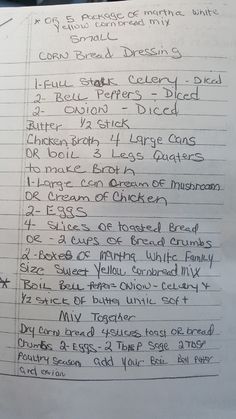 * OR 5 Package of martha white
yellow cornbread mix
Small
Corn Bread Dressing
1-Full Stalk Celery - Diced
2- Bell Peppers - Diced
2- Onion - Diced
Butter 1/2 Stick
Chicken Broth 4 Large Cans
OR boil 3 Legs Quaters
to make Broth
1-Large can Cream of mushroom
OR Cream of Chicken
2- Eggs
4- Slices of toasted Bread
OR - 2 cups of Bread Crumbs
2-Boxes of Martha White Family
Size Sweet Yellow Cornbread Mix
* Boil Bell Onion - Celery +
1/2 Stick of butter until Soft
Mix Together
Dry Corn bread 4 slices toast OR bread
Chumbs 2-Eggs - 2 Tbsp Sage 2 Tbsp
Poultry Season add Your Boil Bell Peper
and onion